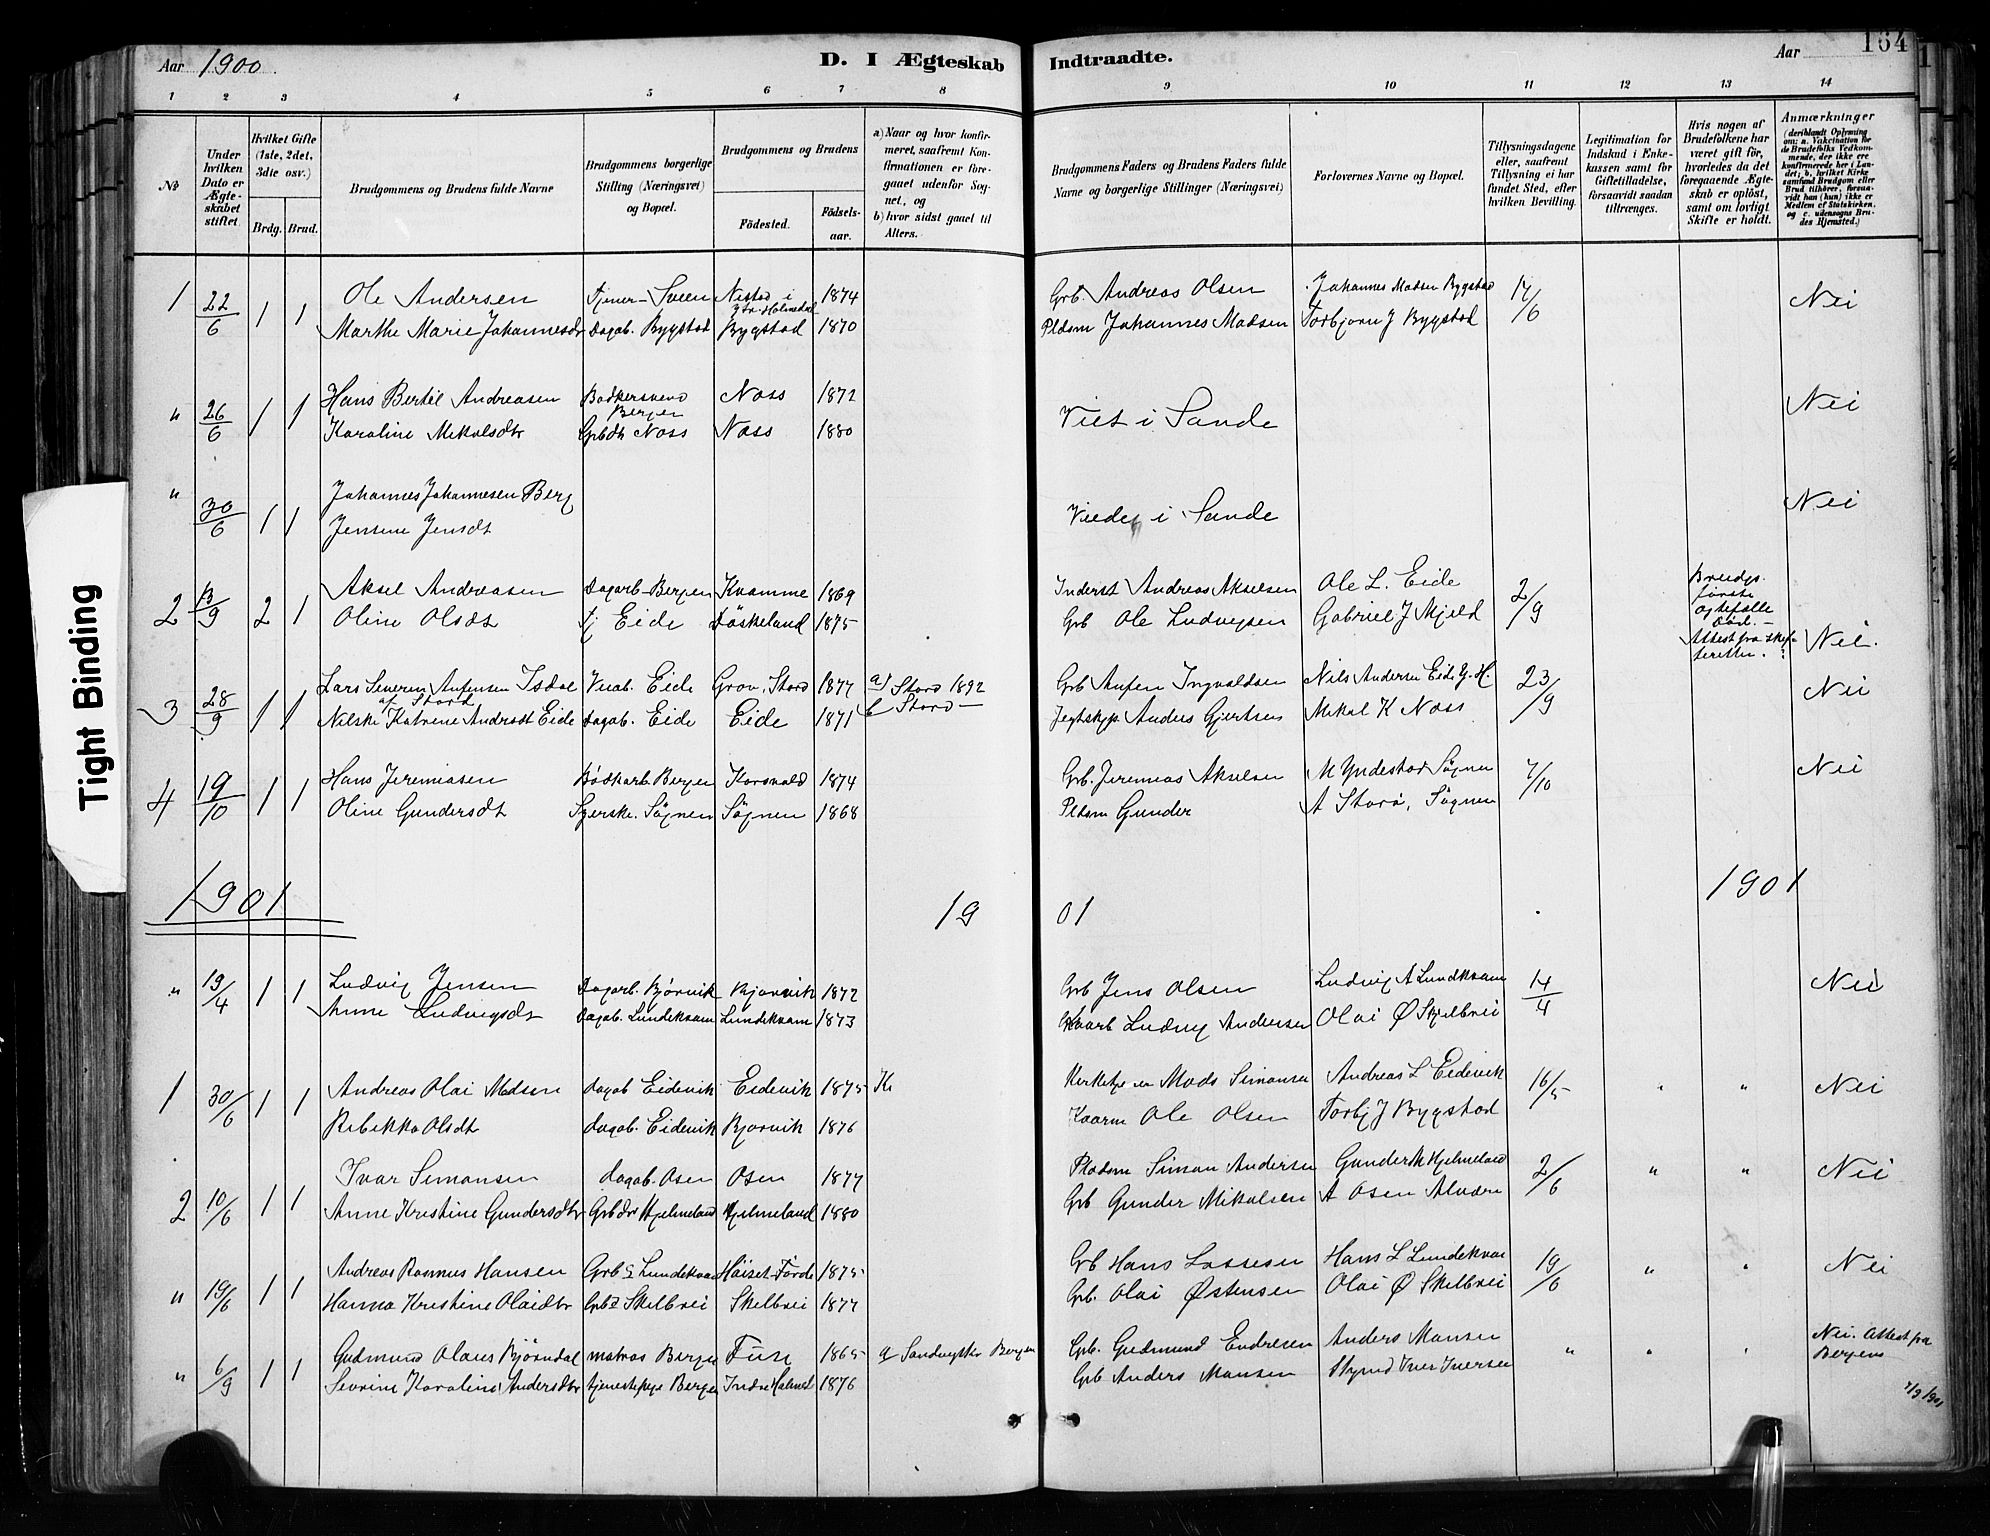 Aar 1900. D. I Ægteskab Indtraadte. Aar 164
1 2 3 4 5 6 7 8 9 10 11 12 13 14
№
Under hvilken Dato er Ægteskabet stiftet.
Hvilket Gifte (1ste, 2det, 3die osv.)
Brdg. Brud.
Brudgommens og Brudens fulde Navne
Brudgommens borgerlige Stilling (Næringsvei) og Bopæl.
Brudgommens og Brudens
Födested. Födsels-aar.
a) Naar og hvor konfirmeret, saafremt Konfirmationen er foregaaet udenfor Sognet, og
b) hvor sidst gaaet til Alters.
Brudgommens Faders og Brudens Faders fulde Navne og borgerlige Stillinger (Næringsvei)
Forlovernes Navne og Bopæl.
Tillysningsdagene eller, saafremt Tillysning ei har fundet Sted, efter hvilken Bevilling.
Legitimation for Indskud i Enkekassen samt for Giftetilladelse, forsaavidt saadan tiltrænges.
Hvis nogen af Brudefolkene har været gift för, hvorledes da det foregaaende Ægteskab er oplöst, samt om lovligt Skifte er holdt.
Anmærkninger (deriblandt Oplysning om: a. Vakcination for de Brudefolks Vedkommende, der ikke ere konfirmerede her i Landet; b. hvilket Kirkesamfund Brudgom eller Brud tilhörer, forsaavidt han (hun) ikke er Medlem af Statskirken, og c. udensogns Brudes Hjemsted.)
1 22/6 1 1 Ole Andersen Tjener - Sveen Nistad i Ytr. Holmedal 1874 Grb. Andreas Olsen Johannes Madsen Bygstad 17/6 Nei
Marthe Marie Johannesdr Dagab. Bygstad Bygstad 1870 Pldsm Johannes Madsen Torbjørn J Bygstad
" 26/6 1 1 Hans Bertil Andreasen Bødkersvend Bergen Næss 1872 Viet i Sande Nei
Karoline Mikalsdtr Grbdt Næss Næss 1880
" 30/6 1 1 Johannes Johannesen Berg Viede i Sande Nei
Jensine Jensdt
2 13/9 2 1 Aksel Andreasen Dagarb. Bergen Kvamme 1869 Inderst Andreas Akselsen Ole L. Eide 2/9 Brudgs. første Ægtefælle Død. - Attest fra skifteretten. Nei.
Oline Olsdt Tj Eide Døskeland 1875 Grb Ole Ludvigsen Gabriel J Mjeld
3 28/9 1 1 Lars Severin Anfensen Isdal af Stord Eide Grov, Stord 1877 a) Stord 1892 Grb Anfen Ingvaldsen Nils Andersen Eide G. H. 23/9 Nei
Nilske Katrine Andersdt Eide Dagab. Eide Eide 1871 b Stord - Jegtskpp. Anders Gjertsen Mikal K Næss
4 19/10 1 1 Hans Jeremiasen Bødkarb. Bergen Korsvold 1874 Grb. Jeremias Akselsen M Yndestad Søgnen 7/10 Nei
Oline Gundersdt Syerske. Søgnen Søgnen 1868 Pldsm Gunder A Storø, Søgnen
1901 1901 1901
" 19/4 1 1 Ludvig Jensen Dagarb. Bjørvik Bjørvik 1872 Grb Jens Olsen Ludvig A Lundkvam 14/4 Nei
Anne Ludvigsdt Dagab. Lundekvam Lundekvam 1873 Ludvig Andersen Olai Ø Skjelbrei
1 30/6 1 1 Andreas Olai Madsen dagab Eidevik Eidevik 1875 K Mads Simonsen Andreas L Eidevik 16/5 " " Nei
Rebekka Olsdt dagab. Eidevik Bjørvik 1876 Kaarm Ole Olsen Torbj J Bygstad
2 10/6 1 1 Ivar Simonsen dagab. Osen Osen 1877 Pladsm Simon Andersen Gunder M Hjelmeland 2/6 " " Nei
Anne Kristine Gundersdtr Grbdr Hjelmeland Hjelmeland 1880 Grb Gunder Mikalsen A Osen Alværn
" 19/6 1 1 Andreas Rasmus Hansen Grb s Lundekvam Høiset-Førde 1875 Grb Hans Lassesen Hans L Lundekvam 19/6 " " Nei
Hanna Kristine Olaidtr Grbd Skelbrei Skelbrei 1877 Grb. Olai Østensen Olai Ø Skelbrei
" 6/9 1 1 Gudmund Olaus Bjørndal matros Bergen Fuse 1865 a Sandvigske Bergen Grb. Gudmund Endresen Anders Mansen " " " Nei. Attest fra Bergens
Severine Karoline Andersdtr tjenestepige Bergen Indre Holmed 1876 Grb Anders Mansen Iver Iversen 7/9/901
Tight Binding